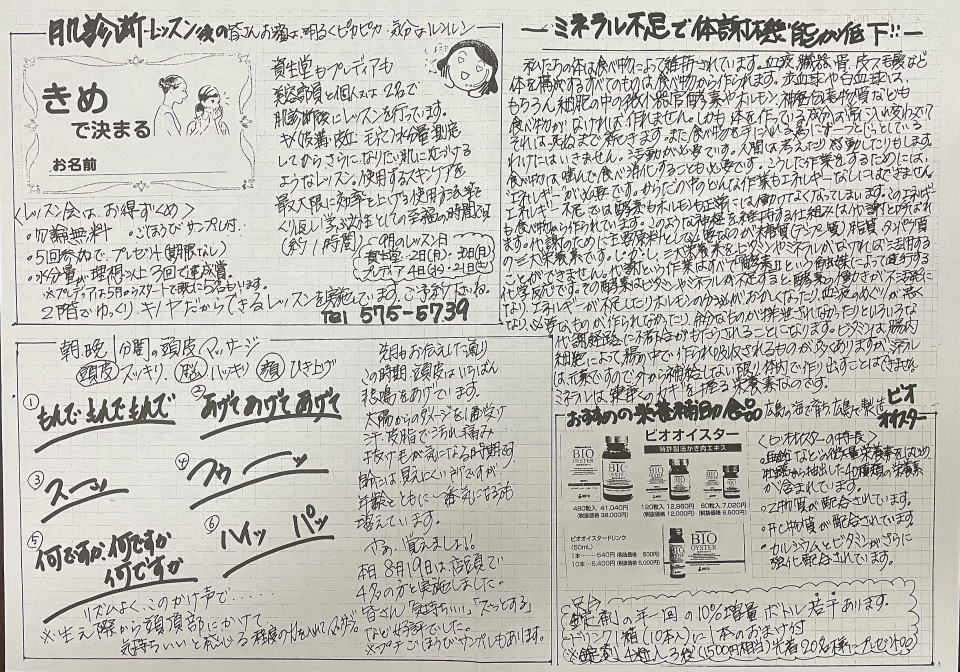 肌診断レッスン後の皆さんお顔は明るくピカピカ、気分はルンルン
きめ
で決まる
お名前
資生堂もプレディアも
美容部員と個人又は2名で
肌診断後にレッスンを行っています。
してからさらに、なりたい肌に近づける
ようなレッスン。使用するスキンケアを
最大限に効率を上げる使用方法を
くり返し学ぶ女性としての至福の時間です
(約1時間)
9月のレッスン日
資生堂・2日(月)・30日(月)
プレディア4日(水)・21日(土)
<レッスン会は、お得ずくめ>
・勿論無料 ・ごほうびサンプル付
・5回参加で、プレゼント(期限なし)
・水分量が理想以上3回で達成賞。
※プレディアは5月からスタートで既に5名もいます。
2階でゆっくり、キノヤだからできるレッスンを実施しています。ご予約下さいね。
TEL 575-5739
朝、晩 1分間の頭皮マッサージ
頭皮 スッキリ、脳 ハッキリ 顔 ひき上げ
① もんで もんで もんで
② あげて あげて あげて
③ スーッ
④ フゥーッ
⑤ 何ですか 何ですか
何ですか
⑥ ハイッ パッ
リズムよく、このかけ声で・・・・・
※生え際から頭頂部にかけて
気持ちいいと感じる程度の力を入れてマッサージ
先月もお伝えした通り
この時期、頭皮はいちばん
悲鳴をあげています。
太陽からのダメージを1番受け
汗、皮脂で汚れ、痛み
抜け毛が気になる時期。
自分には見えにくい所ですが、
年齢とともに一番気になる方も
増えています。
さぁ、覚えましょ!!
本日8月19日は店頭で
4名の方と実施しました。
皆さん「気持ちいい」「スーッとする」
など好評でした。
※プチごほうびサンプルもあります。
ミネラル不足で体調、機能が低下!!
私たちの体は食べ物によって維持されています。血液、臓器、骨、皮フ、毛髪など
体を構成するすべてのものは、食べ物から作られます。赤血球や白血球は、
もちろん、細胞の中の微小器官、酵素やホルモン、神経伝達物質なども
食べ物がなければ作れません。しかも体を作っている成分は常に入れ変わっていて
それは、死ぬまで続きます。また食べ物を手に入れる為にずーっとじっとしている
わけにはいきません。活動が必要です。人間は考えたり感動したりもします。
食べ物は噛んで食べ消化することも必要です。こうした作業をするためには、
エネルギーが必要です。からだの中のどんな作業もエネルギーなしにはできません
エネルギー不足では酵素もホルモンも正常には働けなくなってしまいます。このエネルギー
も食べ物から作られています。このような神経を維持する仕組みは「代謝」と呼ばれ
ます。代謝のために主要原料として必要なのが「糖質(デンプン質)、脂質、タンパク質
の三大栄養素です。しかし、三大栄養素もビタミンやミネラルがなければ活用する
ことができません。代謝という作業はすべて「酵素」という触媒によって進行する
化学反応です。その酵素はビタミンやミネラルの不足すると酵素の働きが不活発に
なり、エネルギーが不足したりホルモンの分泌がおかしくなったり、血液のめぐりが悪く
なり、必要なものが作られなかったり、余分なものが排泄されなかったりというような
代謝経路に不都合がもたらされることになります。ビタミンは、腸内
細胞によって腸の中で作られ吸収されるものが多くありますが、ミネラル
は元素ですので外から補給しない限り体内で作り出すことはできません
ミネラルは、健康へのカギを握る栄養素なのです。
おすすめの栄養補助食品 広島の海で育ち広島で製造 ビオオイスター
ビオオイスター
特許製法かき肉エキス
BIO OYSTER
480粒入 41,040円
(税抜価格 38,000円)
120粒入 12,960円
(税抜価格 12,000円)
60粒入 7,020円
(税抜価格 6,500円)
ビオオイスタードリンク
(50mL)
1本……540円(税抜価格 500円)
10本……5,400円(税抜価格 5,000円)
BIO OYSTER
<ビオオイスターの特長>
・亜鉛などの微量栄養素をはじめ
牡蠣から抽出した40種類の栄養素
が含まれています。
・Z物質が配合されています。
・カルシウムとビタミンがさらに
強化配合されています。
錠剤 年一回の10%増量ボトル若干あります。
ドリンク1箱(10本入)に1本のおまけ付
※錠剤4粒入3袋(1500円相当)先着20名様にプレゼント